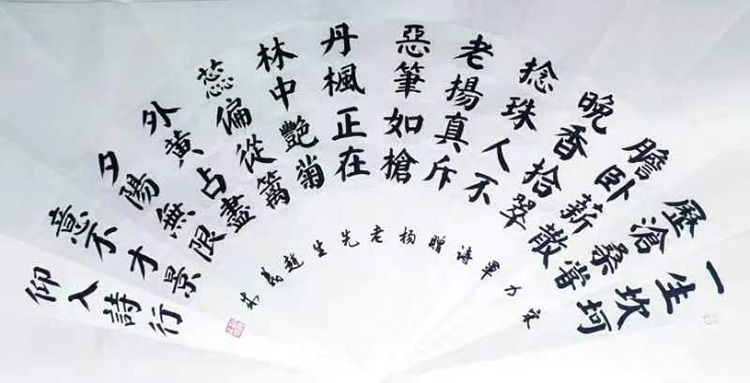 一生坎坷
歷滄桑當
膽臥薪散
晚香拾翠
捻珠人不
老揚真斥
惡筆如槍
丹楓正在
林中艷菊
蕊偏從籬
外黃占盡
夕陽無限
意不才景
仰入詩行
宋力軍詩贈杨老先生趙